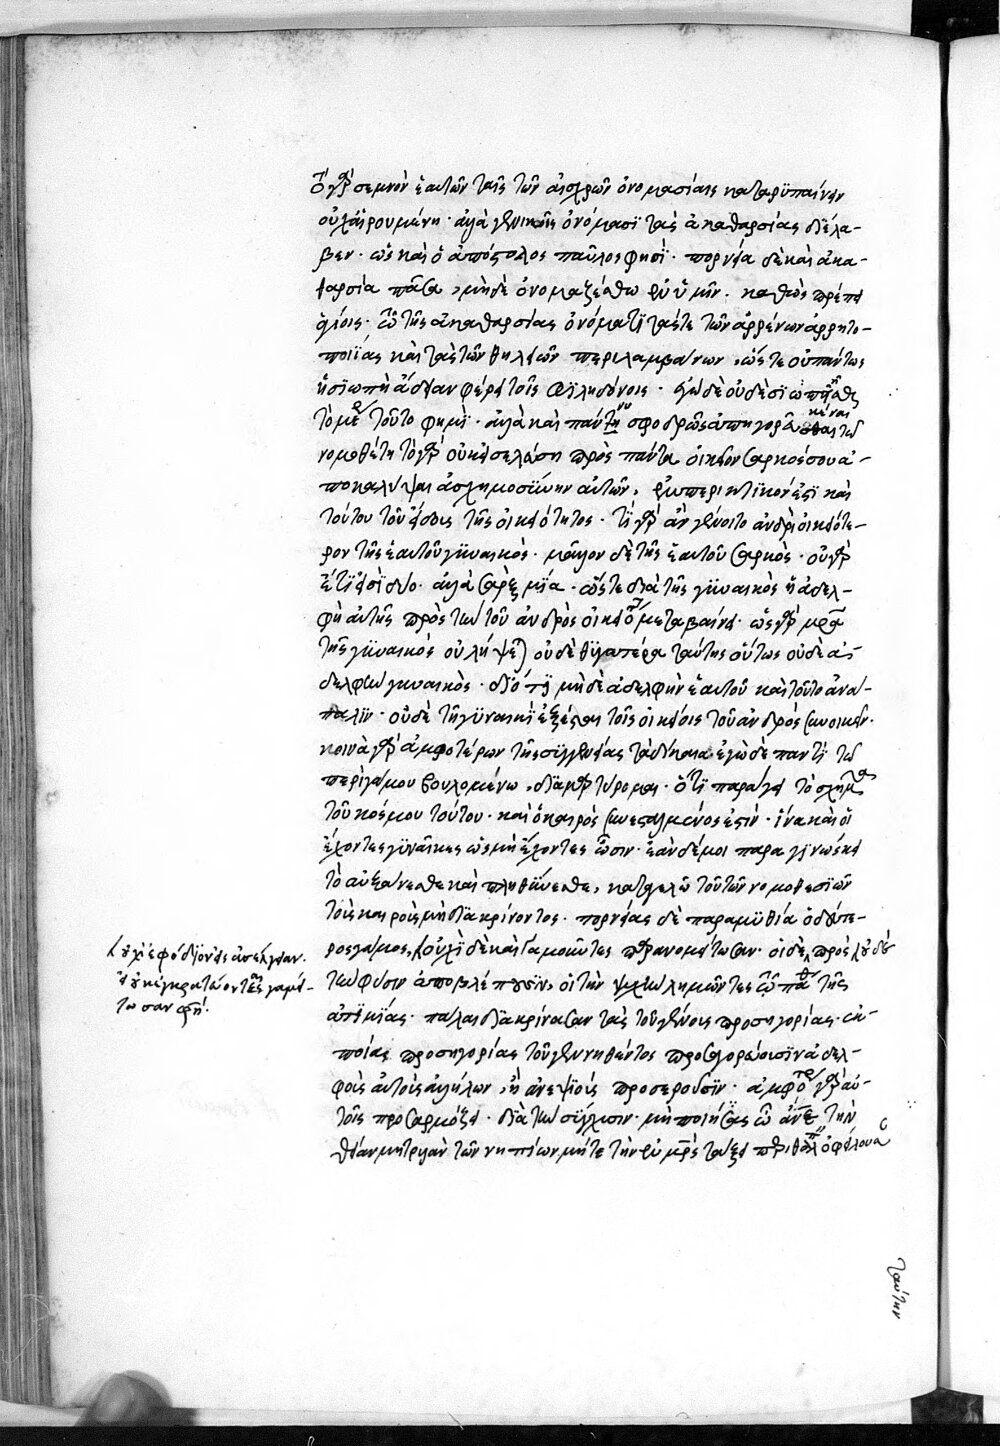 τὸ γὰρ σεμνὸν ἑαυτῶν ταῖς τῶν αἰσχρῶν ὀνομασίαις καταρυπαίνειν
οὐχ αἱρουμένη· ἀλλὰ γενικοῖς ὀνόμασι τὰς ἀκαθαρσίας διέλα-
βεν· ὡς καὶ ὁ ἀπόστολος παῦλος φησὶ· πορνεία δὲ καὶ ἀκα-
θαρσία πᾶσα, μηδὲ ὀνομαζέσθω ἐν ὑμῖν· καθὼς πρέπει
ἁγίοις· τῷ τῆς ἀκαθαρσίας ὀνόματι τάς τε τῶν ἀρρένων ἀρρητο-
ποιίας καὶ τὰς τῶν θηλειῶν περιλαμβάνων, ὥστε οὐ πάντως
ἡ σιωπὴ ἄδειαν φέρει τοῖς φιληδόνοις· ἐγὼ δὲ οὐδὲ σιωπῆσθαι
τὸ μέρος τοῦτο φημὶ· ἀλλὰ καὶ πάνυ σφοδρῶς ἀπηγορευκέναι τὸν
νομοθέτην τὸ γὰρ οὐκ εἰσελεύσῃ πρὸς πάντα οἰκεῖον σαρκός σου ἀ-
ποκαλύψαι ἀσχημοσύνην αὐτῶν, ἐμπεριεκτικόν ἐστι καὶ
τούτου τοῦ εἴδους τῆς οἰκειότητος· τί γὰρ ἂν γένοιτο ἀνδρὶ οἰκειότε-
ρον τῆς ἑαυτοῦ γυναικὸς· μᾶλλον δὲ τῆς ἑαυτοῦ σαρκὸς· οὐ γὰρ
ἔτι εἰσὶ δύο· ἀλλὰ σὰρξ μία· ὥστε διὰ τῆς γυναικὸς ἡ ἀδελ-
φὴ αὐτῆς πρὸς τὴν τοῦ ἀνδρὸς οἰκειότητα μεταβαίνει· ὡς γὰρ μητέρα
τῆς γυναικὸς οὐ λήψεται οὐδὲ θυγατέρα ταύτης οὕτως οὐδὲ ἀ-
δελφὴν γυναικὸς· διότι μηδὲ ἀδελφὴν ἑαυτοῦ καὶ τοῦτο ἀνά-
παλιν· οὐδὲ τῇ γυναικὶ ἐξέσται τοῖς οἰκείοις τοῦ ἀνδρὸς συνοικεῖν·
κοινὰ γὰρ ἀμφοτέρων τῆς συγγενείας τὰ δίκαια ἐγὼ δὲ παντὶ τῷ
περὶ γάμου βουλομένῳ, διαμαρτύρομαι· ὅτι παράγει τὸ σχῆμα
τοῦ κόσμου τούτου· καὶ ὁ καιρὸς συνεσταλμένος ἐστίν· ἵνα καὶ οἱ
ἔχοντες γυναῖκας ὡς μὴ ἔχοντες ὦσιν· ἐὰν δέ μοι παραγινώσκει
τὸ αὐξάνεσθε καὶ πληθύνεσθε, καταγελῶ τοῦ τῶν νομοθεσιῶν
τοὺς καιροὺς μὴ διακρίνοντος· πορνείας δὲ παραμυθία ὁ δεύτε-
ρος γάμος, οὐχὶ δὲ καὶ γαμοῦντες παρανομείτωσαν· οἱ δὲ πρὸς οὐδὲ
τὴν φύσιν ἀποβλέπουσιν, οἱ τὴν ψυχὴν λημῶντες τῷ πάθει τῆς
ἀτιμίας· πάλαι διακρίνασαν τὰς τοῦ γένους προσηγορίας· ἐκ
ποίας προσηγορίας τοὺς γεννηθέντας προσαγορεύουσιν ἀδελ-
φοὺς αὐτοὺς ἀλλήλων, ἢ ἀνεψιοὺς προσεροῦσιν· ἀμφότερα γὰρ αὐ-
τοῖς προσαρμόζει· διὰ τὴν σύγχυσιν· μὴ ποιήσῃς ὦ ἄνθρωπε τὴν
θείαν μητρυιὰν τῶν νηπίων μήτε τὴν ἐν μητρὸς τάξει περιθάλπειν ὀφείλουσαν
οὐχὶ ἐφόδιον εἰς ἀσέλγειαν·
εἰ οὐκ ἐγκρατεύονται γαμεί-
τωσαν φησί·
ταύτην